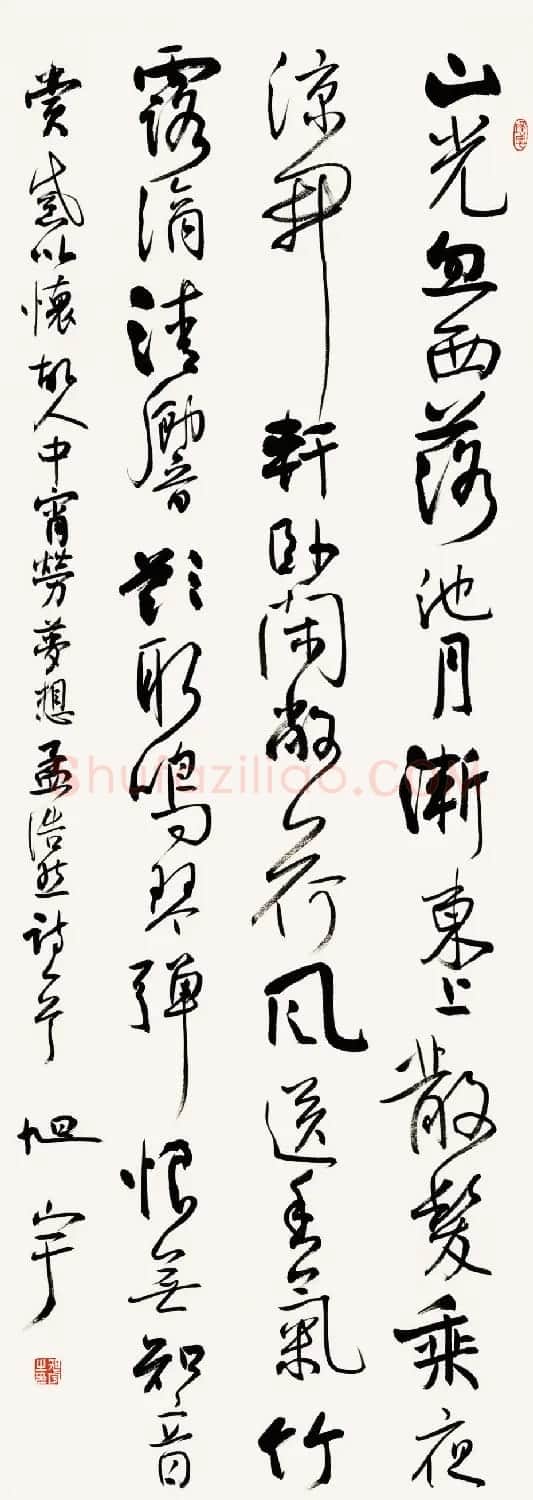 山光忽西落池月漸東上散髮乘夜
涼開軒卧閑敞荷風送香氣竹
露滴清響欲取鳴琴彈恨無知音
賞感以懷故人中宵勞夢想孟浩然詩一首 旭宇
Shufaziliao.COM